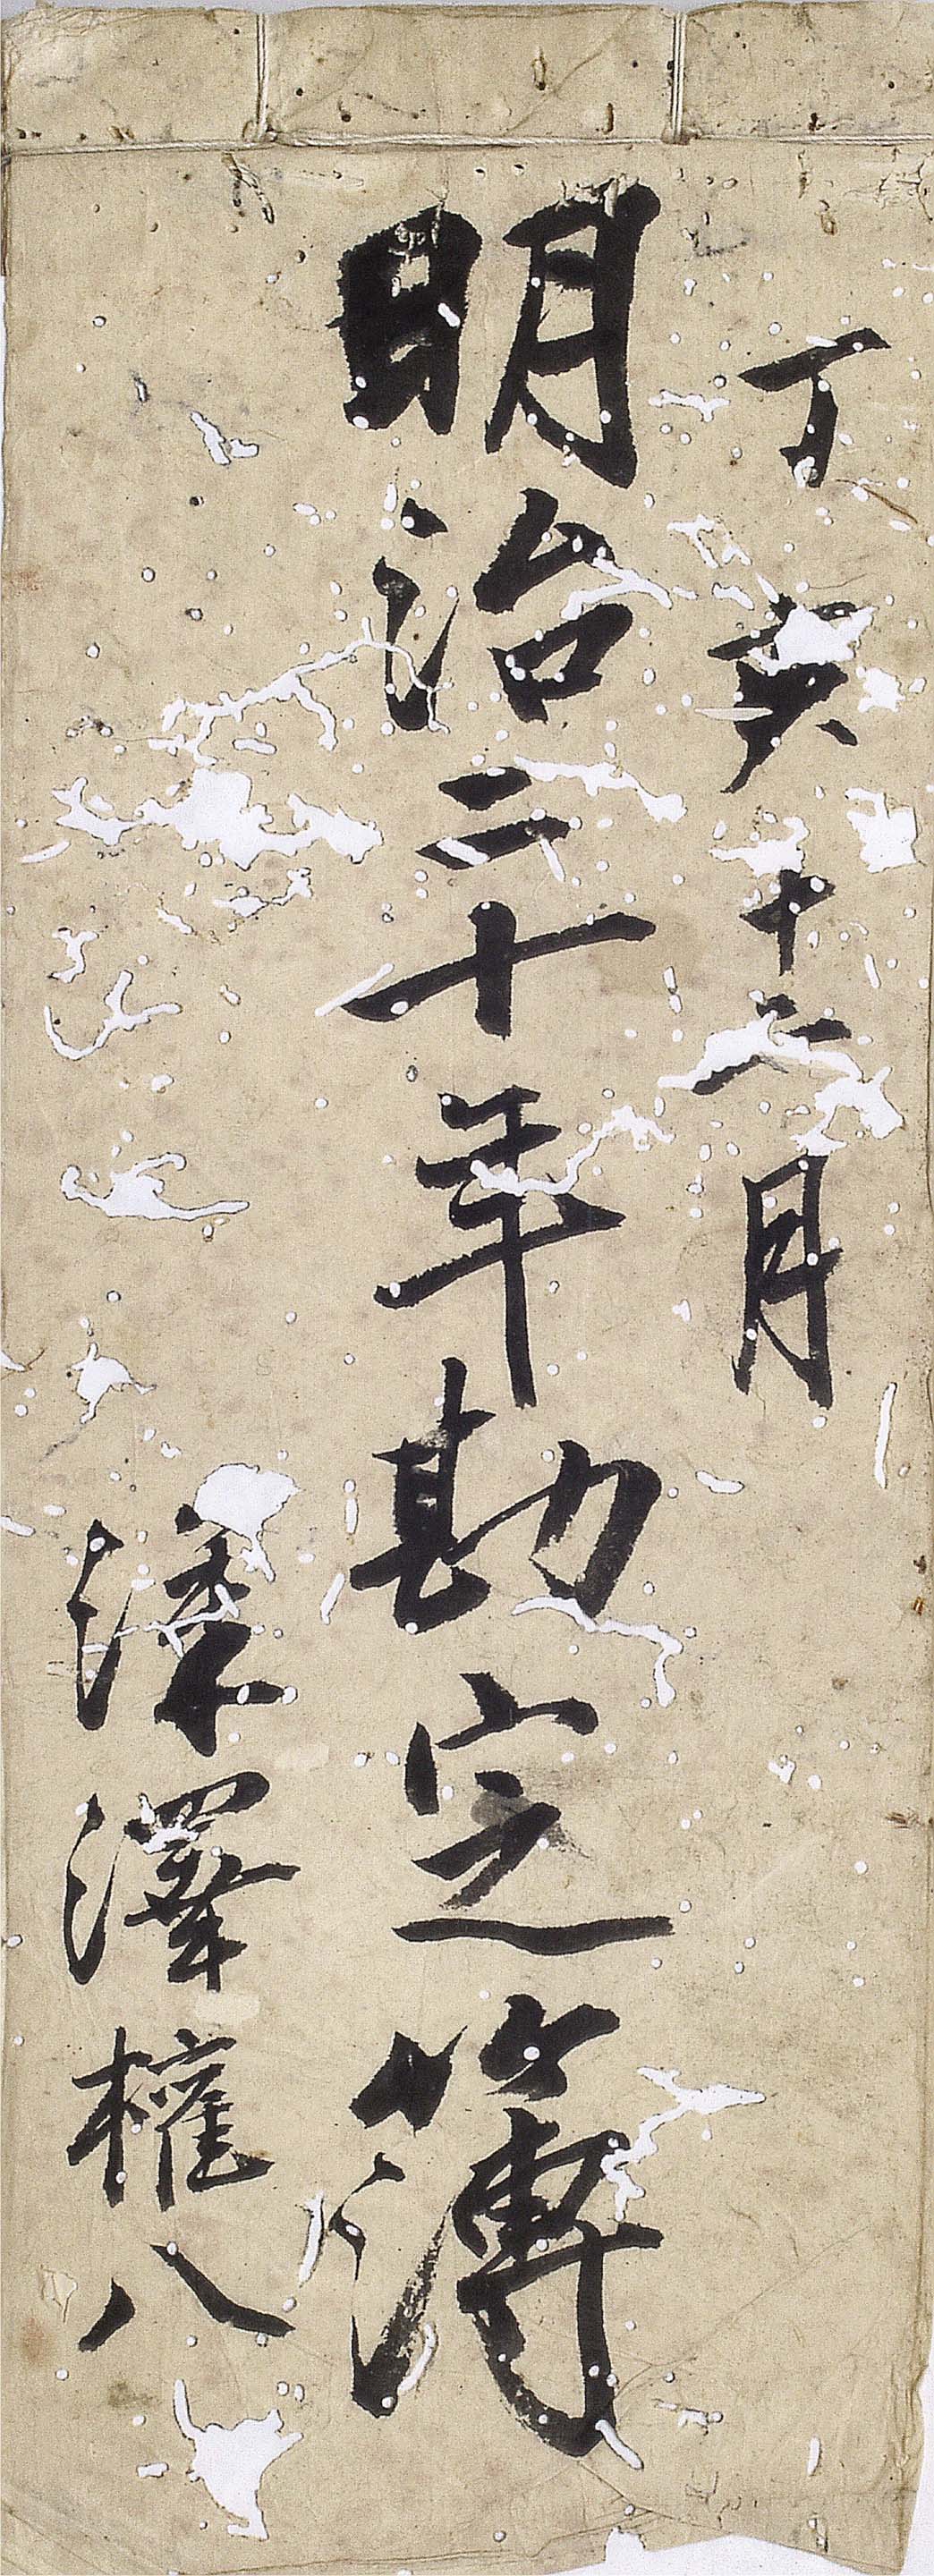 丁亥十二月
明治二十年勘定簿
深澤權八